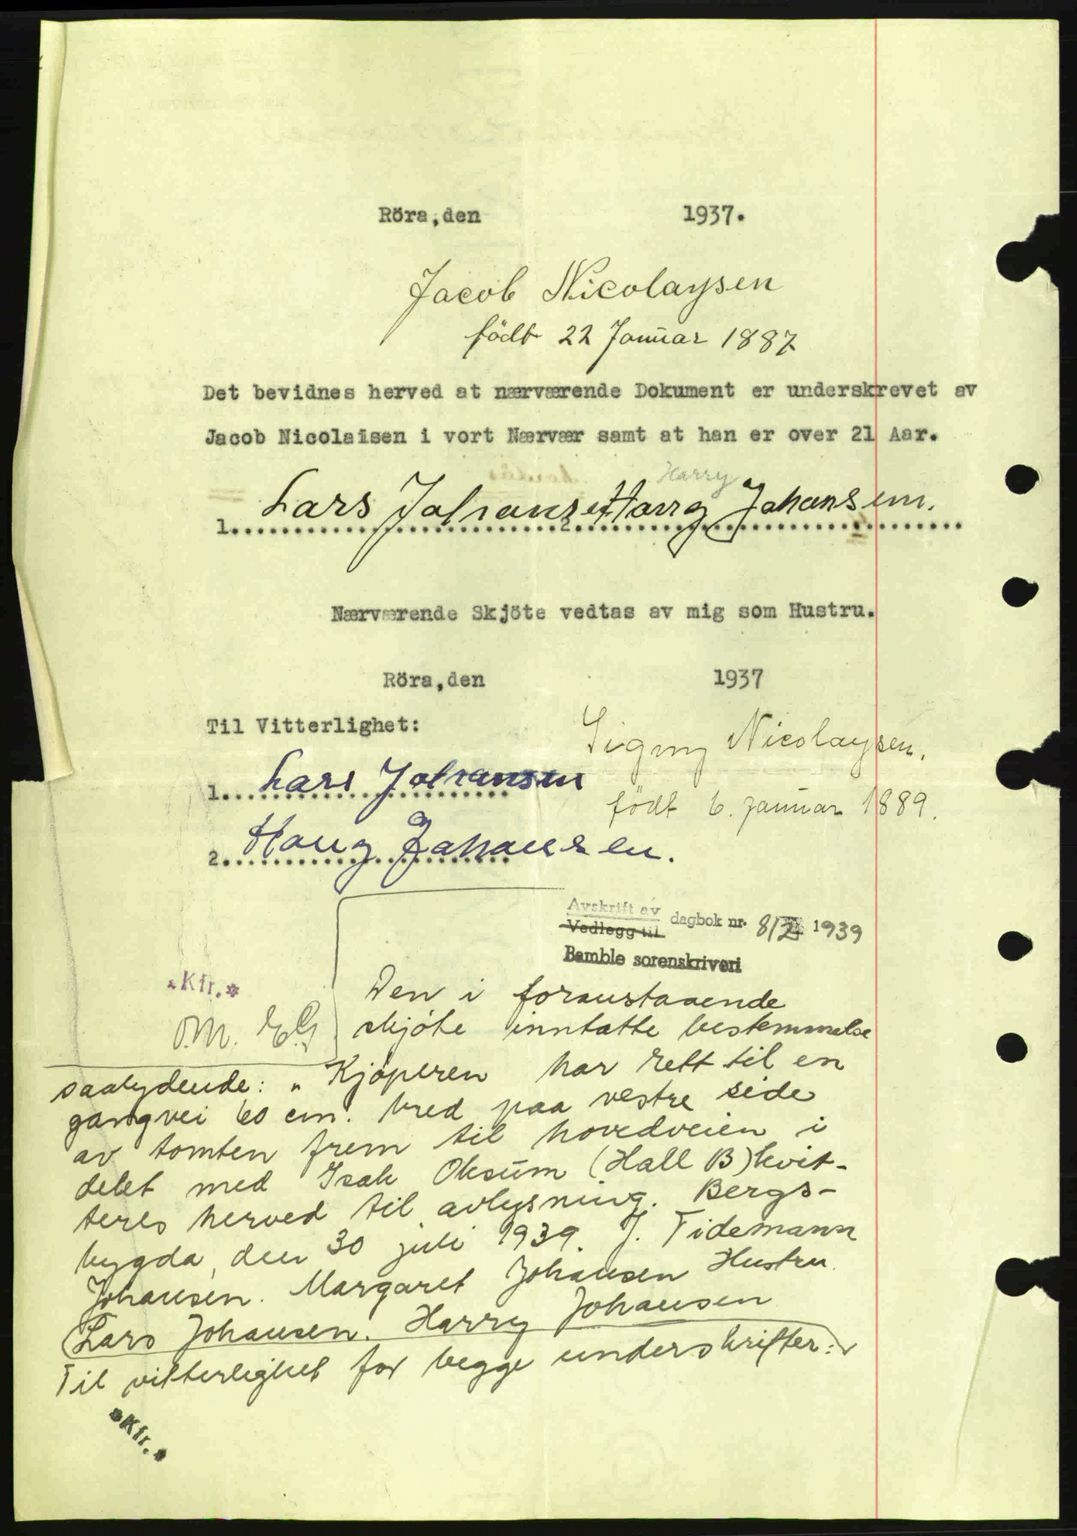 Röra,den 1937.
Jacob Nicolaysen
födt 22 Januar 1887
Det bevidnes herved at nærværende Dokument er underskrevet av
Jacob Nicolaisen i vort Nærvær samt at han er over 21 Aar.
Harry
1. Lars Johansen 2. Harry Johansen.
Nærværende Skjöte vedtas av mig som Hustru.
Röra,den 1937
Til Vitterlighet:
Signy Nicolaysen.
1. Lars Johansen
födt 6. januar 1889.
2. Harry Johansen.
Avskrift av
Vedlegg til dagbok nr. 1939
Bamble sorenskriveri
*Kfr.*
Den i foranstaaende
skjöte inntatte bestemmelse
saalydende: "Kjöperen har rett til en
gangvei 60 cm. bred paa vestre side
av tomten frem til hovedveien i
delet med Isak Oksum (Hall B) kvit-
teres herved til avlysning. Bergs-
bygda, den 30 juli 1939. J. Tidemann
Johansen. Margaret Johansen Hustru.
Lars Johansen. Harry Johansen
Til vitterlighet for begge underskrifter:
*Kfr.*